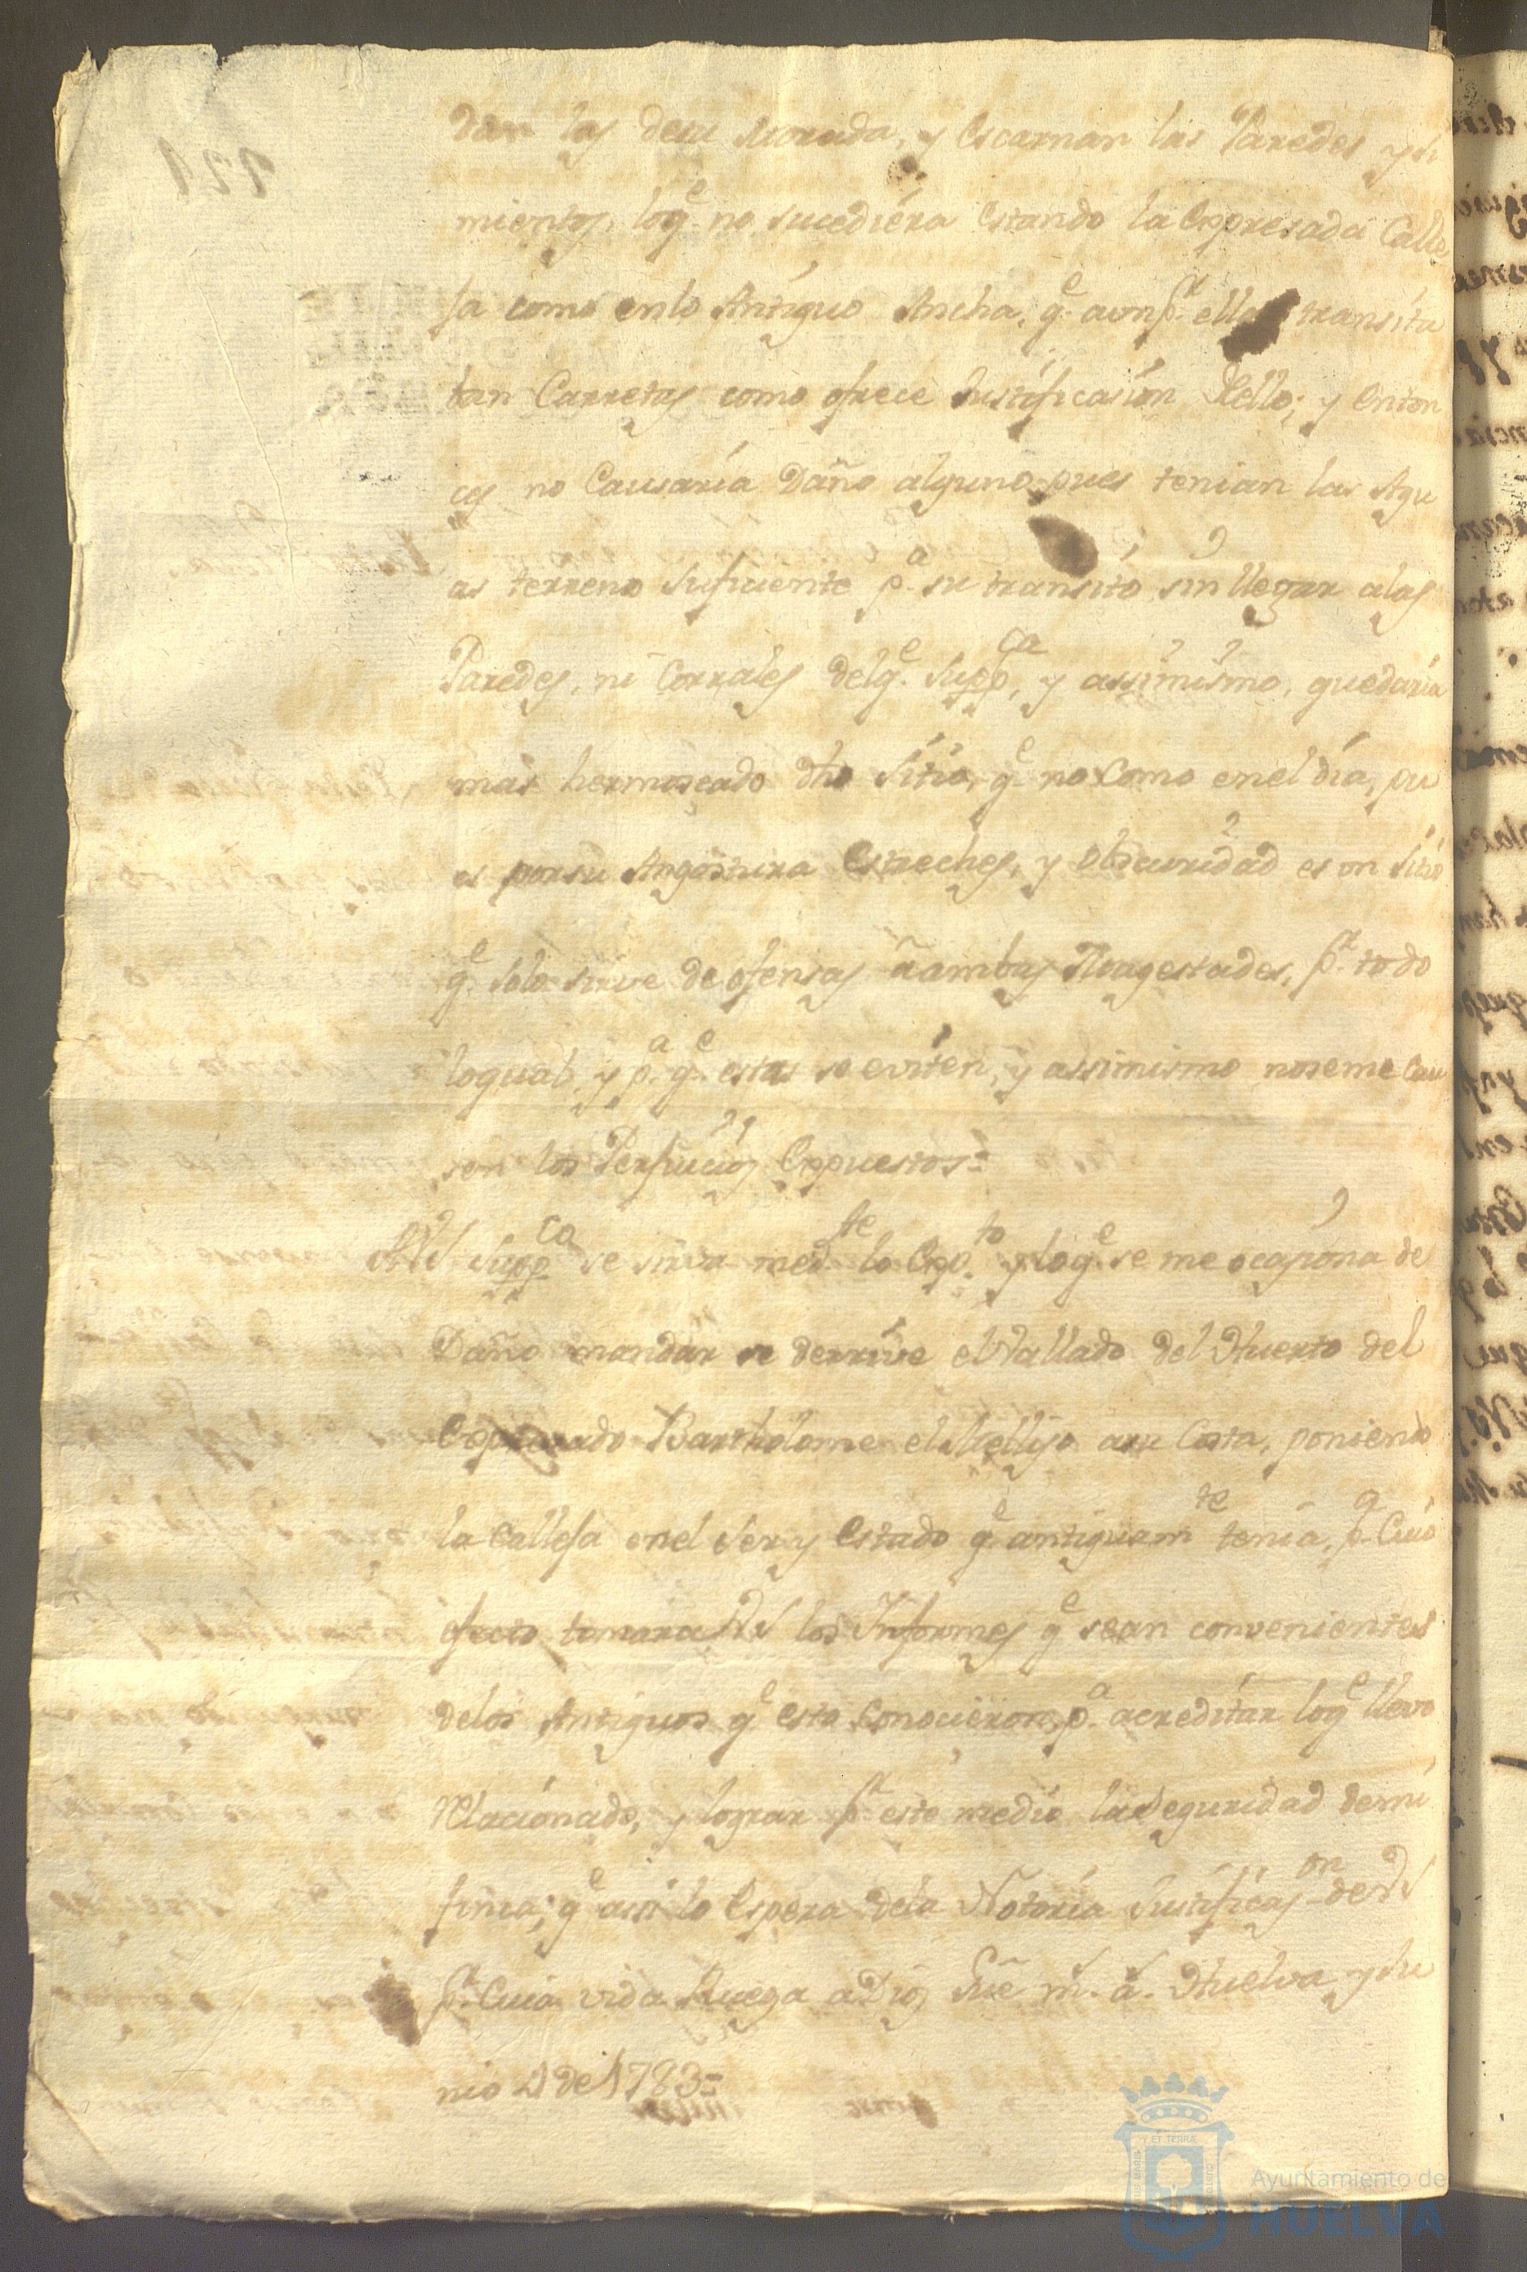 dan las desu Morada, y escarnan las Paredes y si
mientos, loq.e no sucediéra estando la expresada Calle
ja como enlo Antiguo Ancha, q.e aun p.r ella transita
ban Carretas como ofrece Justificasión dello; y enton
ces no Causaría Daño alguno pues tenian las Agu
as terreno suficiente p.a su transito sin llegar alas
Paredes, ni Corrales delq.e Supp.ca, y assimismo, quedaría
mas hermoseado dho Sitio, q.e no como enel día, pu
es porsu Angostura Estreches, y Obscuridad es un sitio
q.e solo sirve de ofensas a ambas Magestades, p.r todo
loqual, y p.a q.e estas se eviten, y assimismo noseme cau
sen los Perjuicios Expuestos=
AVd. Supp.ca se sirva med.te lo Exp.to y loq.e se me ocasiona de
Daño mandar se derrive el Vallado del Huerto del
Expresado Bartholome el Mellizo asu Costa, poniendo
la Calleja enel ser y Estado q.e antiguam.te tenia, p.a Cuio
efecto tomara Vd los Informes q.e sean convenientes
delos Antiguos q.e esto Conocieron, p.a acreditar loq.e llevo
relacionado, y lograr p.r este medio la Seguridad demi
finca; q.e assi lo Espera dela Notoria Justificas.on de Vd
p.r Cuia vida Ruega a Dios Gue m.s a.s Huelva y Ju
nio 4 de 1783=
Ayuntamiento de
HUELVA